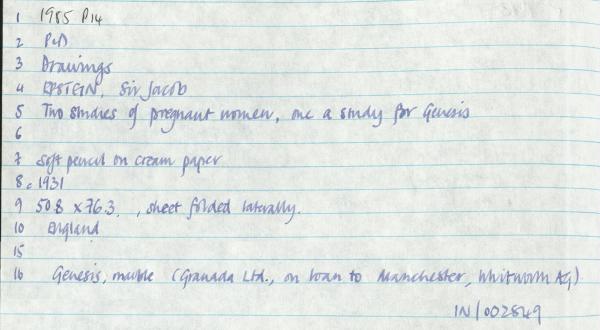 1 1985 P14
2 P&D
3 Drawings
4 EPSTEIN, Sir Jacob
5 Two studies of pregnant women, one a study for Genesis
6
7 Soft pencil on cream paper
8 c.1931
9 50.8 x 76.3 , sheet folded laterally.
10 England
15
16 Genesis, marble (Granada Ltd., on loan to Manchester, Whitworth AG)
IN/002849